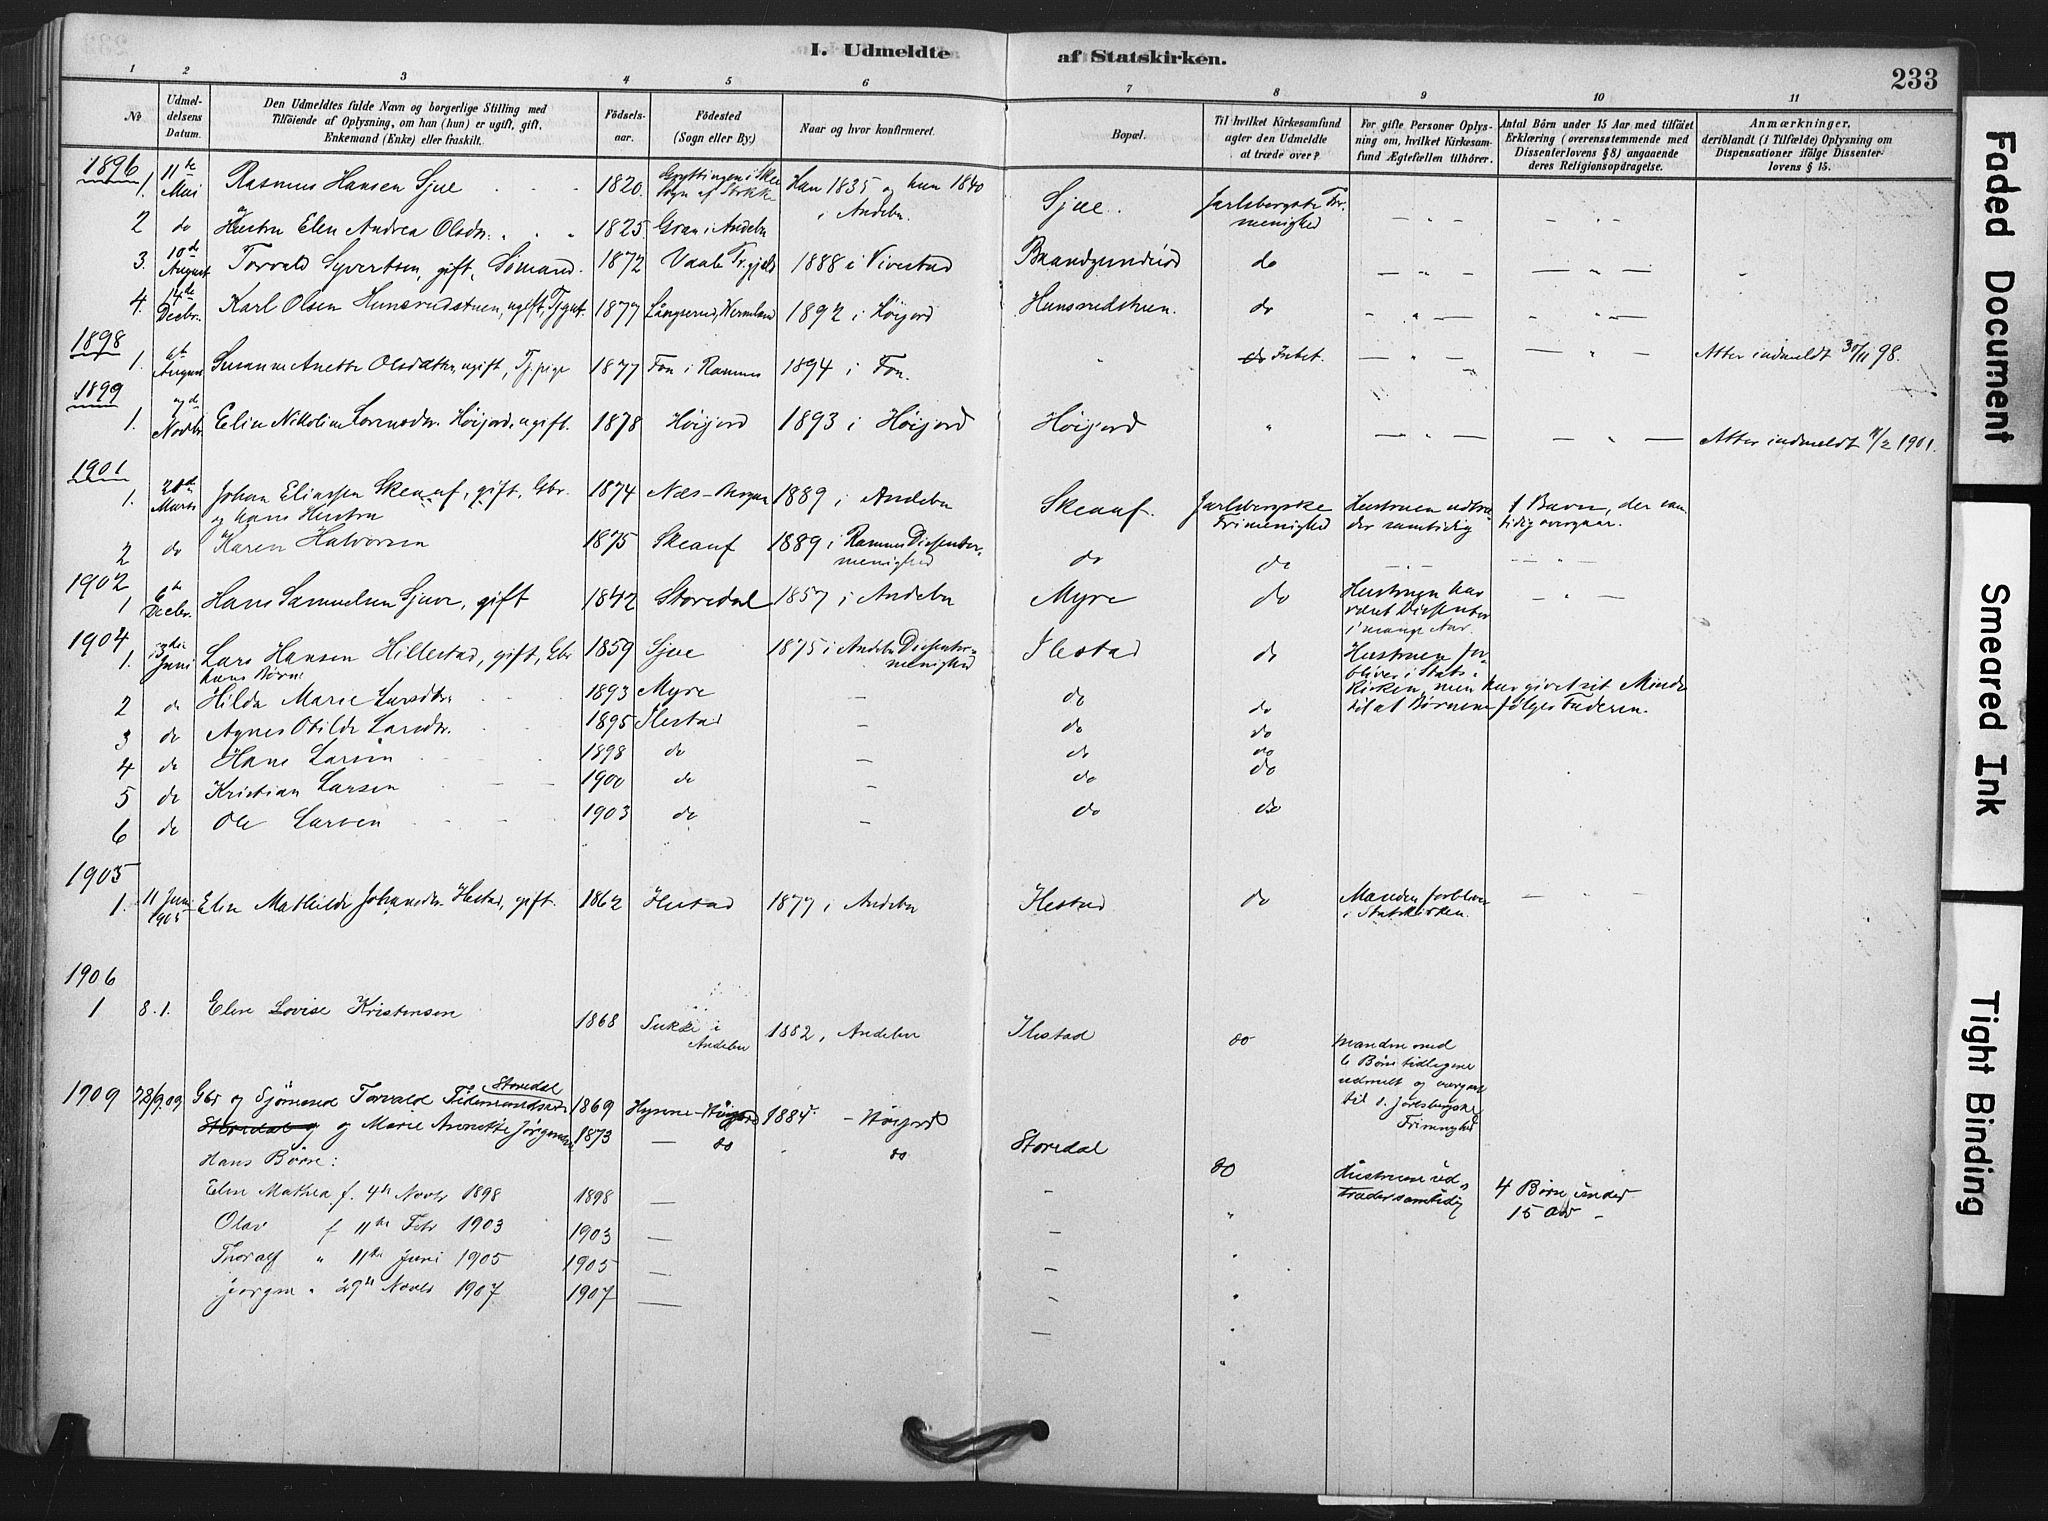 I. Udmeldte af Statskirken.
233
1 2 3 4 5 6 7 8 9 10 11
No
Udmeldelsens Datum.
Den Udmeldtes fulde Navn og borgerlige Stilling med
Tilföiende af Oplysning, om han (hun) er ugift, gift,
Enkemand (Enke) eller fraskilt.
Födselsaar.
Födested
(Sogn eller By.)
Naar og hvor konfirmeret.
Bopæl.
Til hvilket Kirkesamfund
agter den Udmeldte
at træde over?
For gifte Personer Oplysning om, hvilket Kirkesamfund Ægtefællen tilhörer.
Antal Börn under 15 Aar med tilföiet
Erklæring (overensstemmende med
Dissenterlovens § 8) angaaende
deres Religionsopdragelse.
Anmærkninger,
deriblandt (i Tilfælde) Oplysning om
Dispensationer ifölge Dissenterlovens § 15.
1896
1. 11te Mai Rasmus Hansen Sjue 1820. Han 1835 og hun 1840 i Andebu. Sjue. Jarlsbergske Frmenighed
2 do og Hustru Elen Andrea Olsdtr. 1825. Gran i Andebu
3. 10de August Torvald Syvertsen, gift, Sömand. 1872 Vaale Pr.gjeld 1888 i Vivestad do
4. 14de Decbr. Karl Olsen Hunsrødstuen, ugift, Tj.gut. 1877 1892 i Höijord do
1898
1. August Susanne Anette Olsdatter, ugift, Tj.pige 1877 Fon i Ramnes 1894 i Fon. do Intet. Atter indmeldt 30/11 98.
1899
1. Novbr. Elin Nikoline Larensdtr. Höijord, ugift. 1878 Höijord 1893 i Höijord Höijord Atter indmeldt 11/2 1901.
1901
1. 20de Marts Johan Eliassen Skeauf, gift, Gbr. 1874 1889 i Andebu Skeauf. Jarlsbergske Frimenighed Hustruen udtræder samtidig 1 Barn, der samtidig overgaar.
og hans Hustru
2 do Karen Halvorsen 1875 Skeauf 1889 i Ramnes Dissentermenighed do do
1902
1 6te Decbr. Hans Samuelsen Sjuve, gift 1842 Storedal 1857 i Andebu Myre do Hustruen har været Dissenter i mange Aar.
1904
1. Juni Lars Hansen Hillestad, gift, Gbr 1859 Sjue 1875 i Andebu Dissentermenighed Ilestad do Hustruen forbliver i Statskirken, men har givet sit Minde til at Börnene følger Faderen.
hans Börn:
2 do Hilda Marie Larsdtr. 1893 Myre — do do
3 do Agnes Otilde Larsdtr. 1895 Ilestad — do do
4 do Hans Larsen 1898 do — do do
5 do Kristian Larsen 1900 do — do do
6 do Ole Larsen 1903 do — do do
1905
1. 11 Juni 1905 Elen Mathilde Johansdtr. Ilestad, gift. 1862 Ilestad 1877 i Andebu Ilestad do Manden forbliver i Statskirken.
1906
1 8.1. Elen Lovise Kristensen 1868 Sukke i Andebu 1882, Andebu Ilestad do Manden med 6 Börn tidligere udmeldt og overgaaet til d. Jarlsbergske Frimenighed
1909 28/9.09 Gbr og Sjömand Torvald Storedal 1869 1884. Höijord
og Marie Annette Jörgensen 1873 — do do Storedal do Hustruen udtræder samtidig 4 Börn under 15 Aar
Hans Börn:
Elen Mathea f. 4de Novbr 1898 1898 —
Olav f 11te Febr 1903 1903 —
Thoralf " 11te Juni 1905 1905 —
Jörgen " 29de Novbr 1907 1907 —
Faded Document
Smeared Ink
Tight Binding